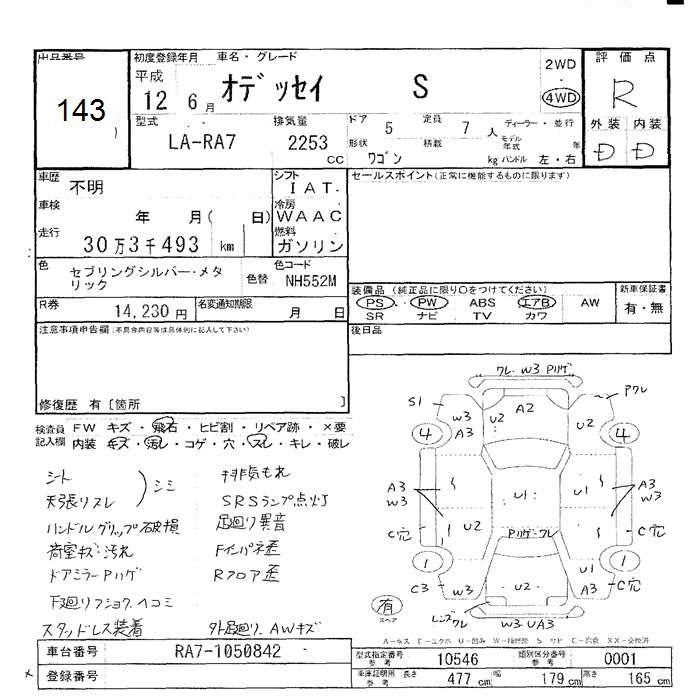 出品番号
143
初度登録年月 車名・グレード
平成
12 6月 オデッセイ S
2WD
・
4WD
評価点
R
外装 内装
D D
型式 排気量 ドア 5 定員 7人 ディーラー・並行
LA-RA7 2253 cc
形状 ワゴン 積載 kg モデル年式 年 ハンドル 左・右
車歴 不明
シフト
I AT.
車検 年 月( 日)
冷房
WAAC
走行 30万3千493 km
燃料
ガソリン
色 セブリングシルバー・メタリック
色替
色コード
NH552M
R券 14,230円 名変通知期限 月 日
セールスポイント(正常に機能するものに限ります)
装備品(純正品に限り○をつけてください)
PS・PW ABS エアB AW
SR ナビ TV カワ
新車保証書
有・無
後日品
注意事項申告欄(不具合内容等は具体的に記入して下さい)
修復歴 有〔箇所 〕
検査員記入欄
FW キズ・飛石・ヒビ割・リペア跡・×要
内装 キズ・汚レ・コゲ・穴・スレ・キレ・破レ
シート
天張りスレ
シミ
ハンドルグリップ破損
荷室キズ汚れ
ドアミラーPハゲ
下廻りフショク.ヘコミ
スタッドレス装着
排気もれ
SRSランプ点灯
足廻り異音
Fインパネ歪
Rフロア歪
外足廻り.AWキズ
ワレ W3 Pハゲ
S1 W3 A3 U2 A2 U2 Pワレ
4 4
A3 W3 U1 A3 W3
C穴 U2 Pハゲ・ワレ C穴
1 1
C3 W3 U2 U1 A3 C穴
有
スペア
レンズワレ W3 UA3
A-キズ E-エクボ U-凹み W-補修跡 S サビ C-腐食 XX-交換済
車台番号 RA7-1050842
登録番号
型式指定番号 参考 10546 類別区分番号 参考 0001
車庫証明用 参考 長さ 477 cm 幅 179 cm 高さ 165 cm